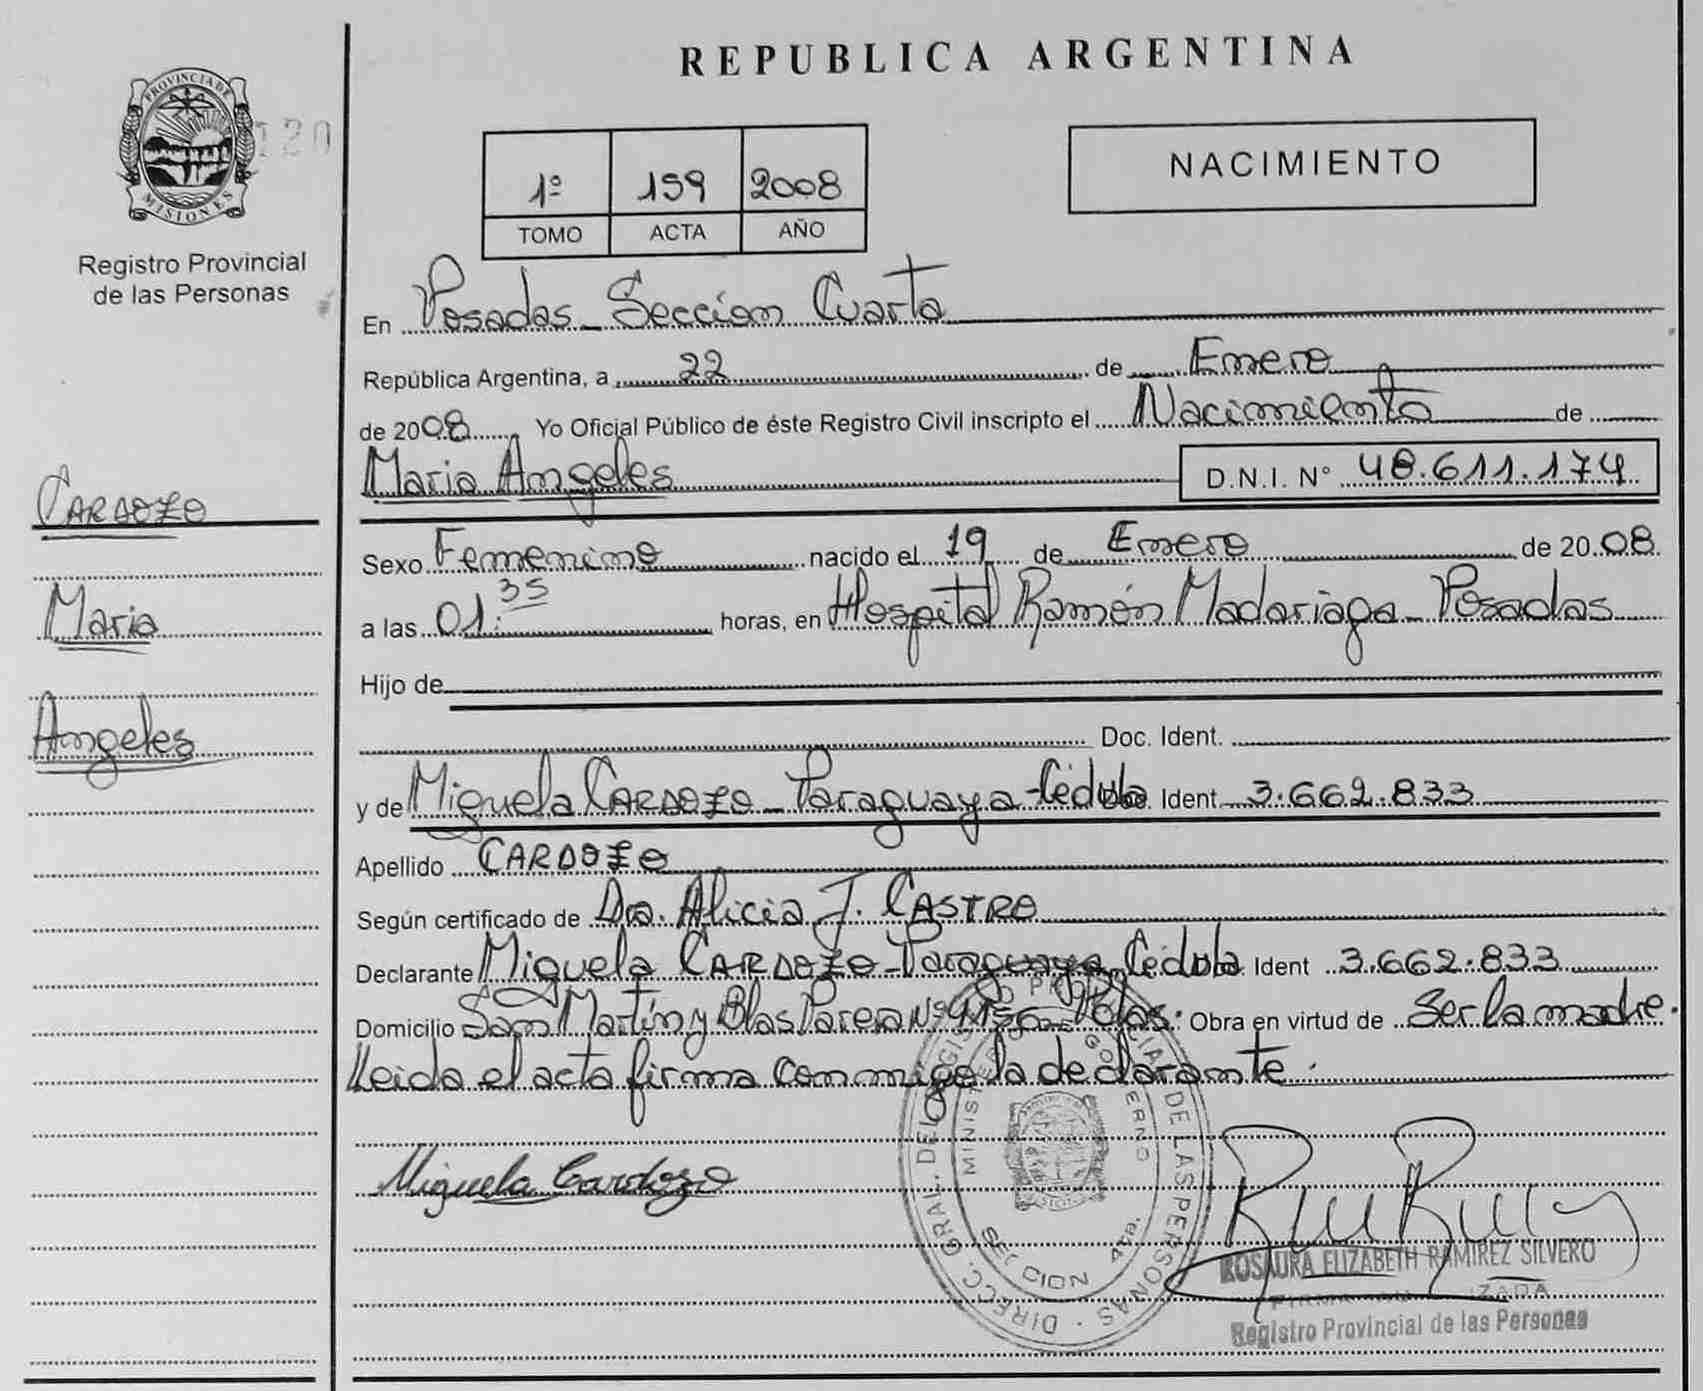 REPUBLICA ARGENTINA
PROVINCIA DE
MISIONES
120
Registro Provincial
de las Personas
1º 159 2008
TOMO ACTA AÑO
NACIMIENTO
En Posadas Sección Cuarta
República Argentina, a 22 de Enero
de 2008 Yo Oficial Público de éste Registro Civil inscripto el Nacimiento de
Maria Angeles D.N.I. N° 48.611.174
CARDOZO
Maria
Angeles
Sexo Femenino nacido el 19 de Enero de 2008
a las 01:35 horas, en Hospital Ramón Madariaga - Posadas
Hijo de
Doc. Ident.
y de Miguela CARDOZO - Paraguaya - Cédula Ident. 3.662.833
Apellido CARDOZO
Según certificado de Dra. Alicia J. CASTRO
Declarante Miguela CARDOZO - Paraguaya Cédula Ident 3.662.833
Domicilio San Martín y Blas Parera Nº Pdas. Obra en virtud de Ser la madre.
Leida el acta firma conmigo la declarante.
Miguela Cardozo
DIREC. GRAL. DEL REGISTRO PROVINCIAL DE LAS PERSONAS
MINISTERIO GOBIERNO
SECCION 4ta.
ROSAURA ELIZABETH RAMIREZ SILVERO
Registro Provincial de las Personas